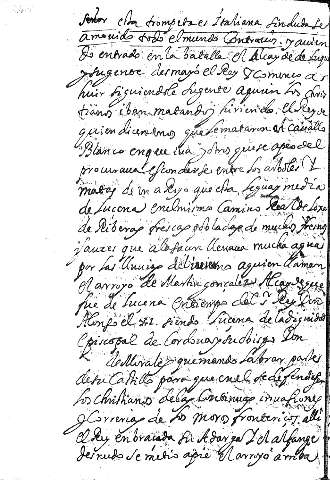 señor esta trompeta es Italiana sin duda se ha
amovido todo el mundo contra vos. y avien
do entrado en la batalla el Alcayde de Luque
y su gente desmayo el Rey y Començo a
huir siguiendole su gente a quien los chris
tianos iban matando y hiriendo. el Rey
quien dicen unos que se mataron el Cavallo
Blanco en que iva y otros que se apeo del
procurava esconderse entre los arboles y
matas de un arroyo que esta legua y media
de Lucena en el mismo camino Real de Loxa
de Riberas frescas pobladas de muchos fresnos
y sauzes que a la saçon llevava mucha agua
por las lluvias del invierno a quien llaman
el arroyo de Martin gonzalez Alcayde que
fue de Lucena en tiempo del Rey Don
Alonso el XI. siendo Lucena de la dignidad
Episcopal de Cordova y su obispo Don
de Morales quemando labrar parte
de su Castillo para que en el se defendiesen
los christianos de las continuas invasiones
y Correrias de los moros fronteriços, alli
el Rey embraçada su Adarga y el alfange
desnudo se metio a pie el arroyo arriba